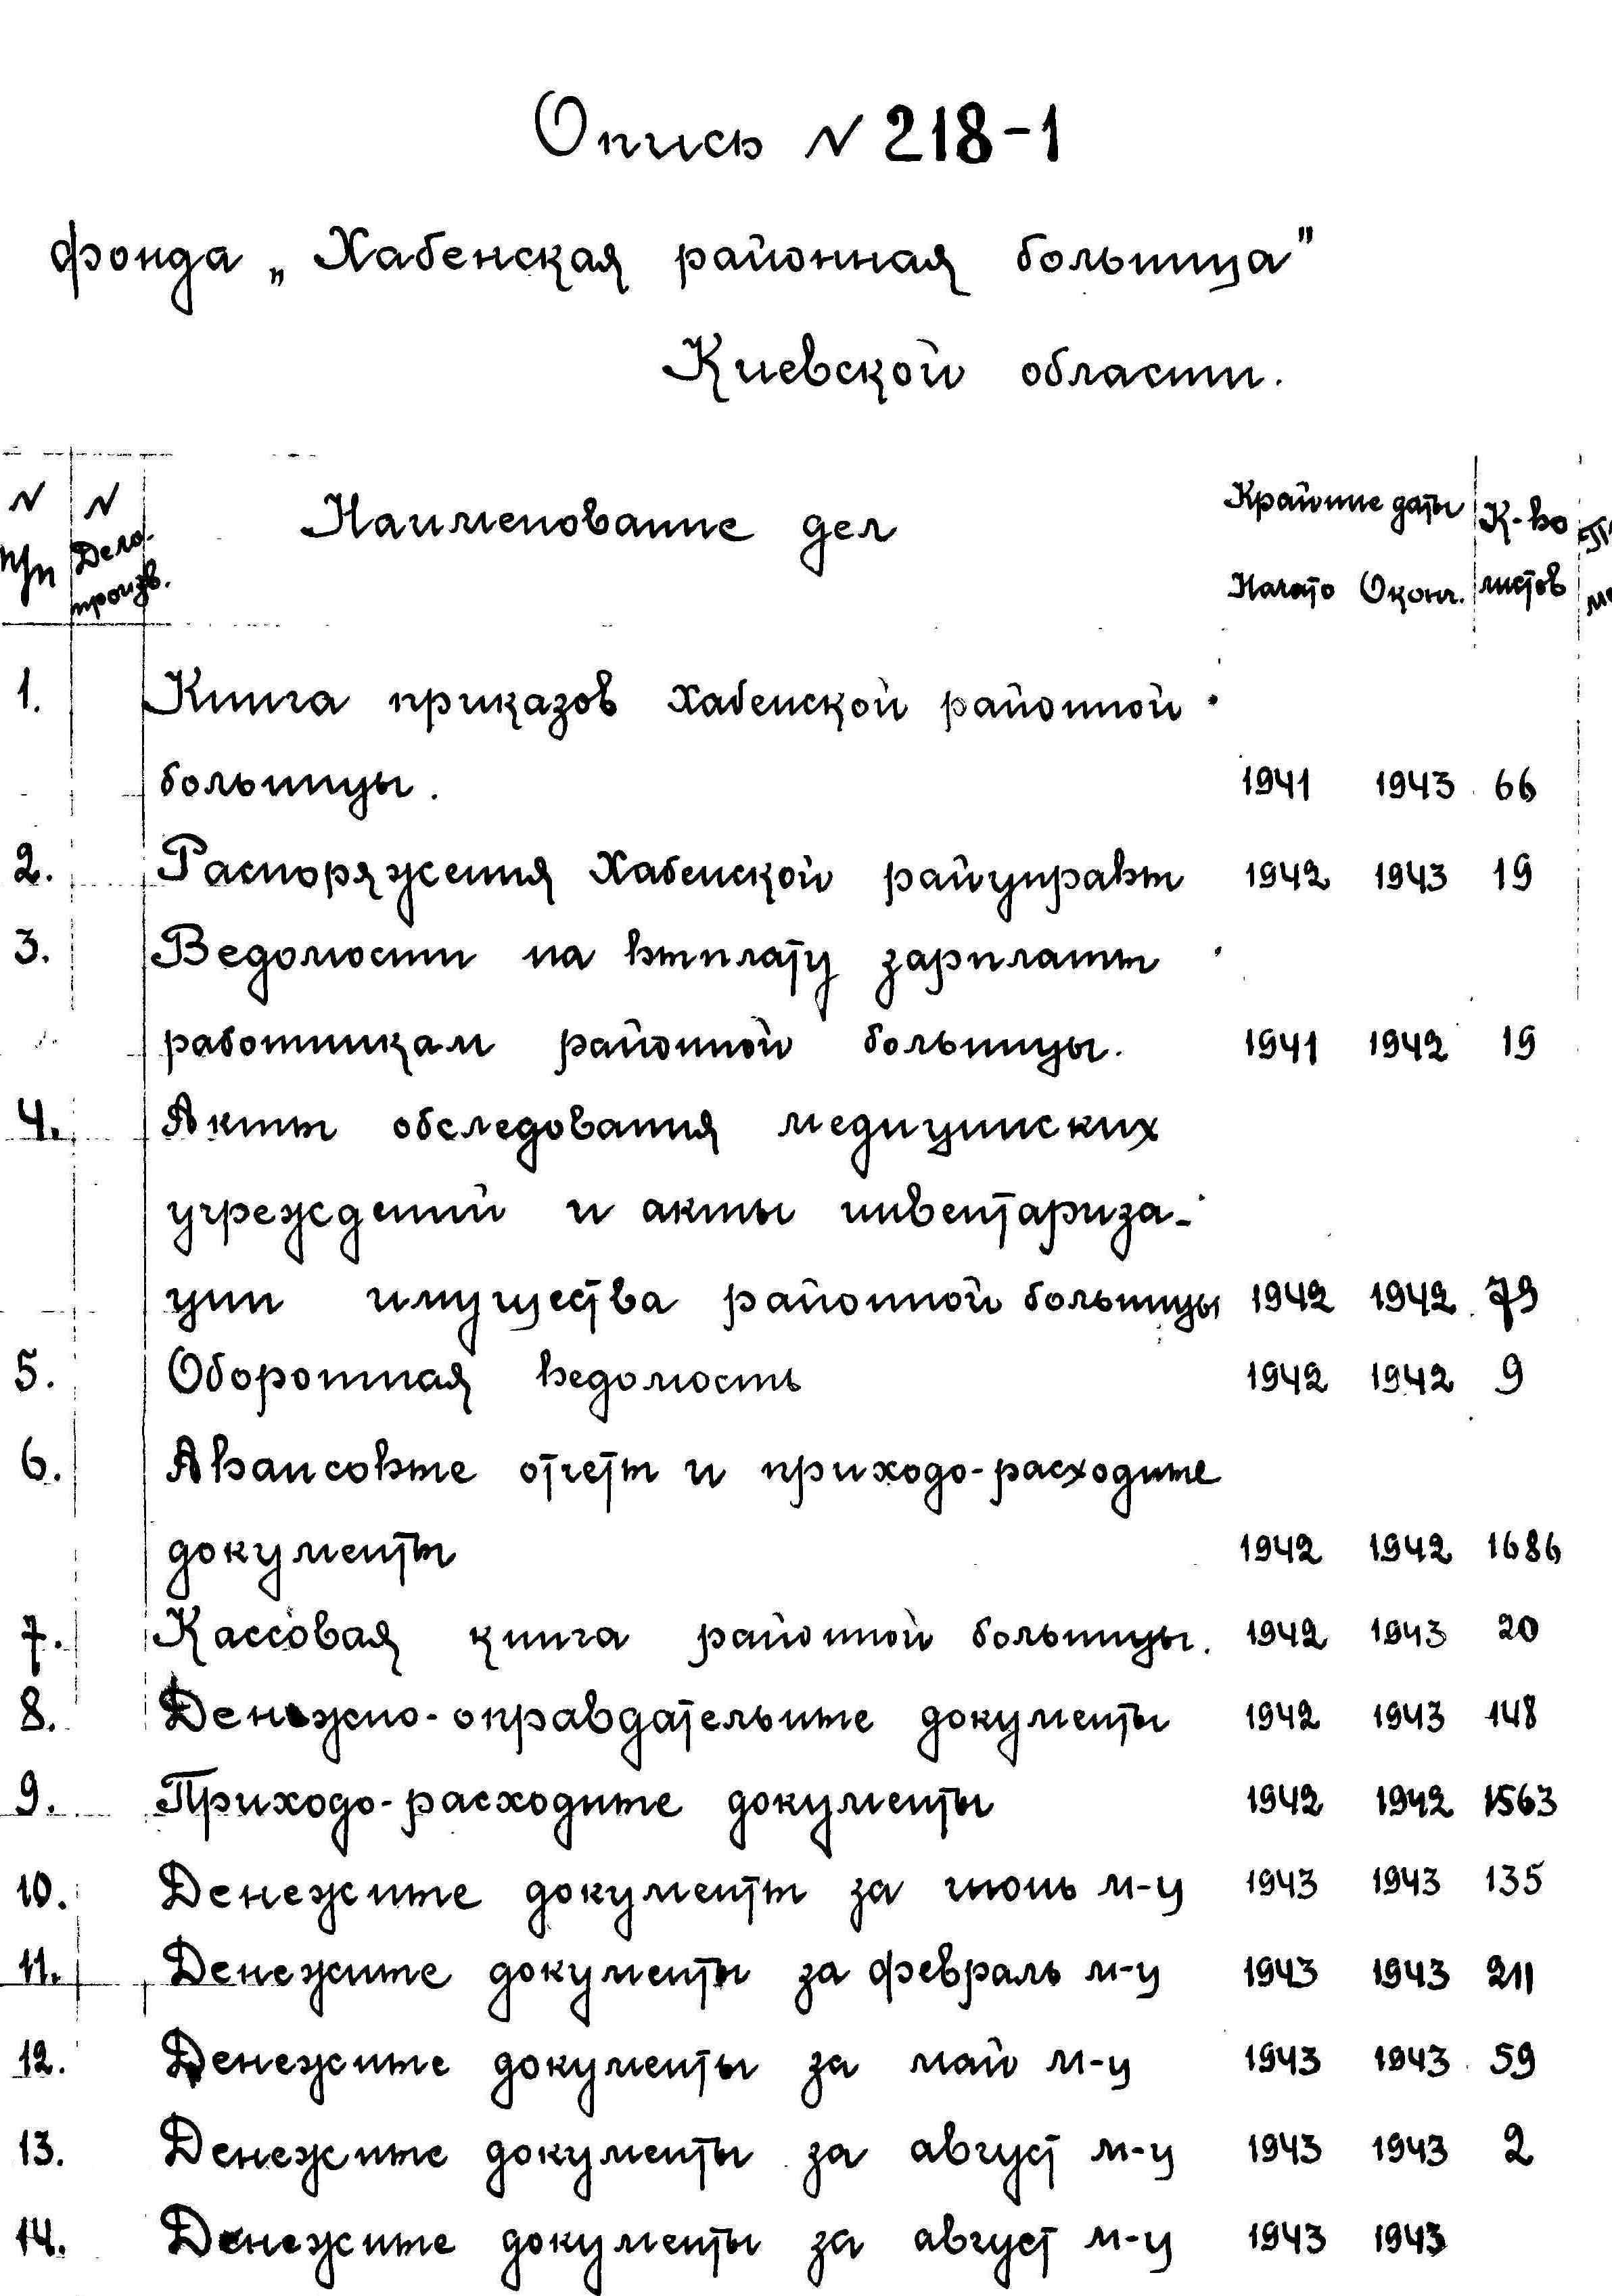 Опись № 218-1
фонда „Хабенская районная больница"
Киевской области.
№ п/п № Дело-произв. Наименование дел Крайние даты К-во листов
Начато Оконч.
1. Книга приказов Хабенской районной
больницы. 1941 1943 66
2. Распоряжения Хабенской райуправы 1942 1943 19
3. Ведомости на выплату зарплаты
работникам районной больницы. 1941 1942 19
4. Акты обследования медицинских
учреждений и акты инвентариза-
ции имущества районной больницы 1942 1942 79
5. Оборотная ведомость 1942 1942 9
6. Авансовые отчеты и приходо-расходные
документы 1942 1942 1686
7. Кассовая книга районной больницы. 1942 1943 20
8. Денежно-оправдательные документы 1942 1943 148
9. Приходо-расходные документы 1942 1942 1563
10. Денежные документы за июнь м-ц 1943 1943 135
11. Денежные документы за февраль м-ц 1943 1943 211
12. Денежные документы за май м-ц 1943 1943 59
13. Денежные документы за август м-ц 1943 1943 2
14. Денежные документы за август м-ц 1943 1943